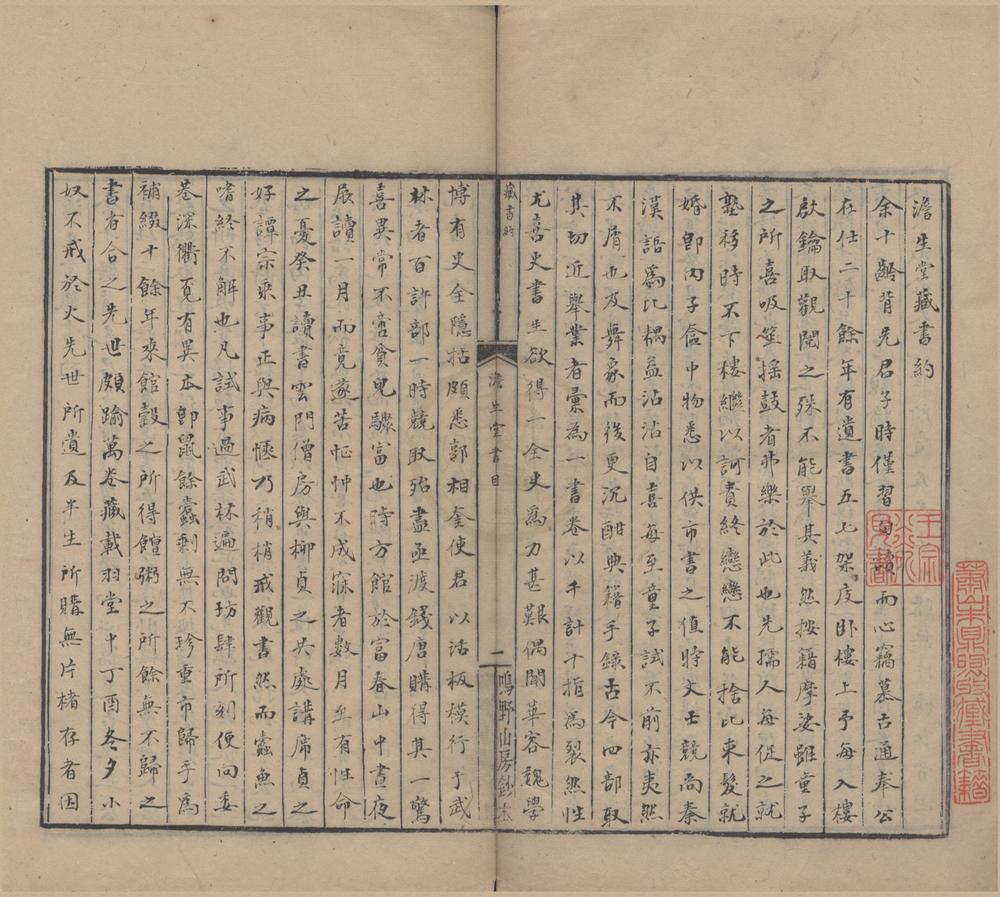 澹生堂藏書約
余十齡背先君子時僅習句讀而心竊慕古通奉公
在仕二十餘年有遺書五七架庋卧樓上予每入樓
啟鑰取觀閱之殊不能舉其義然按籍摩娑雖童子
之所喜吸笙搖鼓者弗樂於此也先孺人每促之就
塾移時不下樓繼以訶責終戀戀不能捨比束髮就
婚卽內子奩中物悉以供市書之值時文士競尚秦
漢語為比耦益沾沾自喜每至童子試不前亦夷然
不屑也及舞象而後更沉酣典籍手錄古今四部取
其切近舉業者彙為一書卷以千計十指為裂然性
尤喜史書生欲得一全史為力甚艱偶聞華容魏學
藏書約
澹生堂書目
一
鳴野山房鈔本
博有史全隱括頗悉郭相奎使君以活板模行于武
林者百許部一時競取殆盡亟渡錢唐購得其一驚
喜異常不啻貧兒驟富也時方館於富春山中晝夜
展讀一月而竟遂苦怔忡不成寐者數月至有性命
之憂癸丑讀書雲門僧房與柳貞之共處講席貞之
好譚宗乘事正與病愜乃稍稍戒觀書然而蠹魚之
嗜終不解也凡試事過武林遍問坊肆所刻便向委
巷深衢覓有異本卽鼠餘蠹剩無不珍重市歸手為
補綴十餘年來館穀之所得饘粥之所餘無不歸之
書者合之先世頗踰萬卷藏載羽堂中丁酉冬夕小
奴不戒於火先世所遺及半生所購無片楮存者因
王宗炎所見書
藏書籍